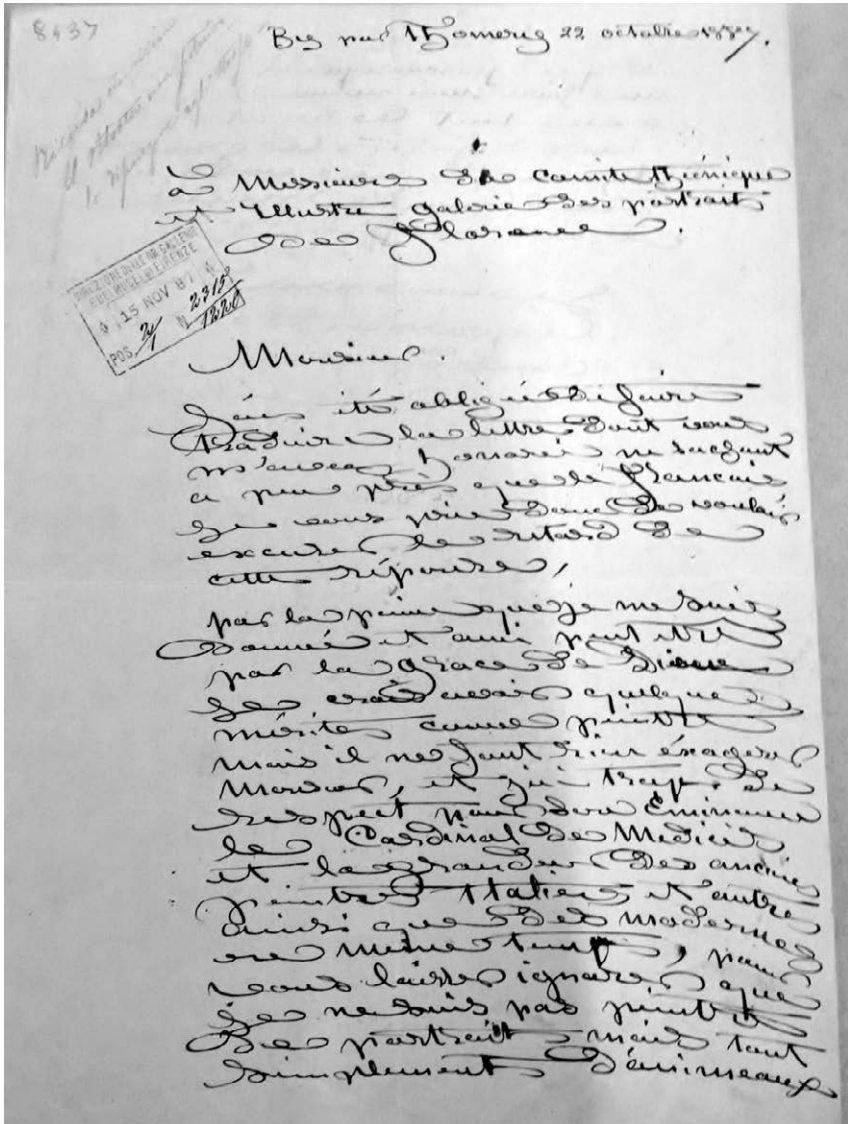 8437
By par Thomery 22 octobre 1887.
à Messieurs du comité thénique
et Illustre galerie des portrait
de Florence.
DIREZIONE DELLE RR. GALLERIE
E DEI MUSEI DI FIRENZE
15 NOV 87
POS. 2/1 N 2315
1220
Messieurs.
J'ais été obligée de faire
traduire la lettre dont vous
m'avez honorée ne sachant
a peu près que le Francais
je vous prie donc de voulois
excuser le retard de
cette réponse,
par la peine que je me suis
donnée et aussi peut etre
par la grace de Dieu
je crois avois quelque
mérites comme peintre
mais il ne faut rien éxagérer
Messieurs, et j'ai trop de
respect pour son Eminence
le Cardinal de Medicis
et la grandeur des anciens
peintres Italiens et autre
ainsi que des modernes
en même temps, pour
vous laisser ignorer que
je ne suis pas peintre
de portrait mais tout
simplement d'animeaux